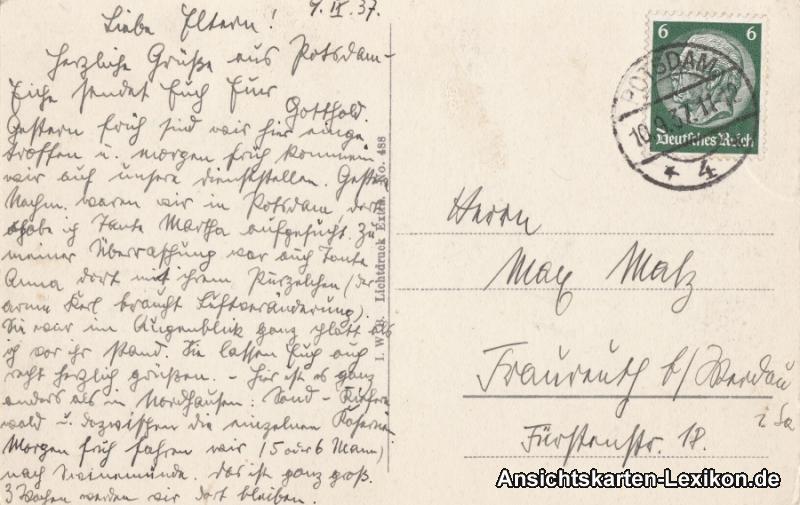 9.IX.37.
Liebe Eltern!
Herzliche Grüße aus Potsdam-
Eiche sendet Euch Euer
Gotthold.
Gestern früh sind wir hier einge
troffen u. morgen früh kommen
wir auf unsere Dienststellen. Gestern
Nachm. waren wir in Potsdam, dort
habe ich Tante Martha aufgesucht. Zu
meiner Überraschung war auch Tante
Anna dort mit ihrem Purzelchen (der
arme Kerl braucht Luftveränderung).
Sie war im Augenblick ganz platt als
ich vor ihr stand. Sie lassen Euch auch
recht herzlich grüßen. – Hier ist es ganz
anders als in Nordhausen: Sand- Kiefern
wald u. dazwischen die einzelnen Kasernen
Morgen früh fahren wir (5 oder 6 Mann)
nach Swinemünde. Das ist ganz groß.
3 Wochen werden wir dort bleiben.
I. W. B. Lichtdruck Extra No. 488
6 6
Deutsches Reich
POTSDAM
10.9.37.11-12
* 4
Herrn
Max Malz
Fraureuth b/Werdau
i/Sa
Fürstenstr. 18.
Ansichtskarten-Lexikon.de